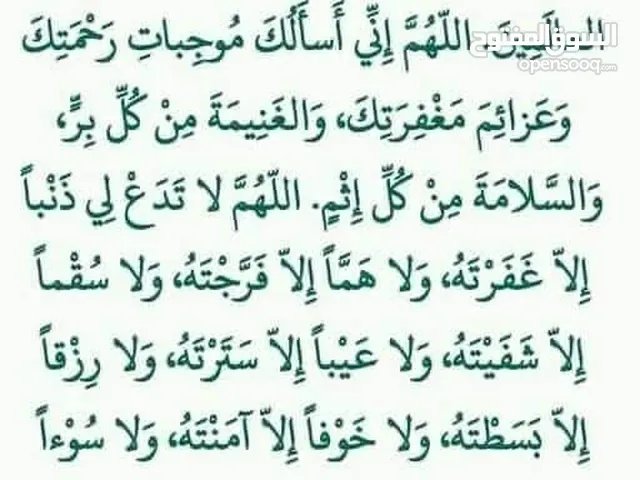 العالَمِينَ. اللّهُمَّ إِنِّي أَسأَلُكَ مُوجِباتِ رَحْمَتِكَ
وَعَزائِمَ مَغْفِرَتِكَ، وَالغَنِيمَةَ مِنْ كُلِّ بِرٍّ،
وَالسَّلامَةَ مِنْ كُلِّ إِثْمٍ. اللّهُمَّ لا تَدَعْ لِي ذَنْباً
إِلاّ غَفَرْتَهُ، وَلا هَمَّاً إِلاّ فَرَّجْتَهُ، وَلا سُقْماً
إِلاّ شَفَيْتَهُ، وَلا عَيْباً إِلاّ سَتَرْتَهُ، وَلا رِزْقاً
إِلاّ بَسَطْتَهُ، وَلا خَوْفاً إِلاّ آمَنْتَهُ، وَلا سُوْءاً
السوق المفتوح
opensooq.com